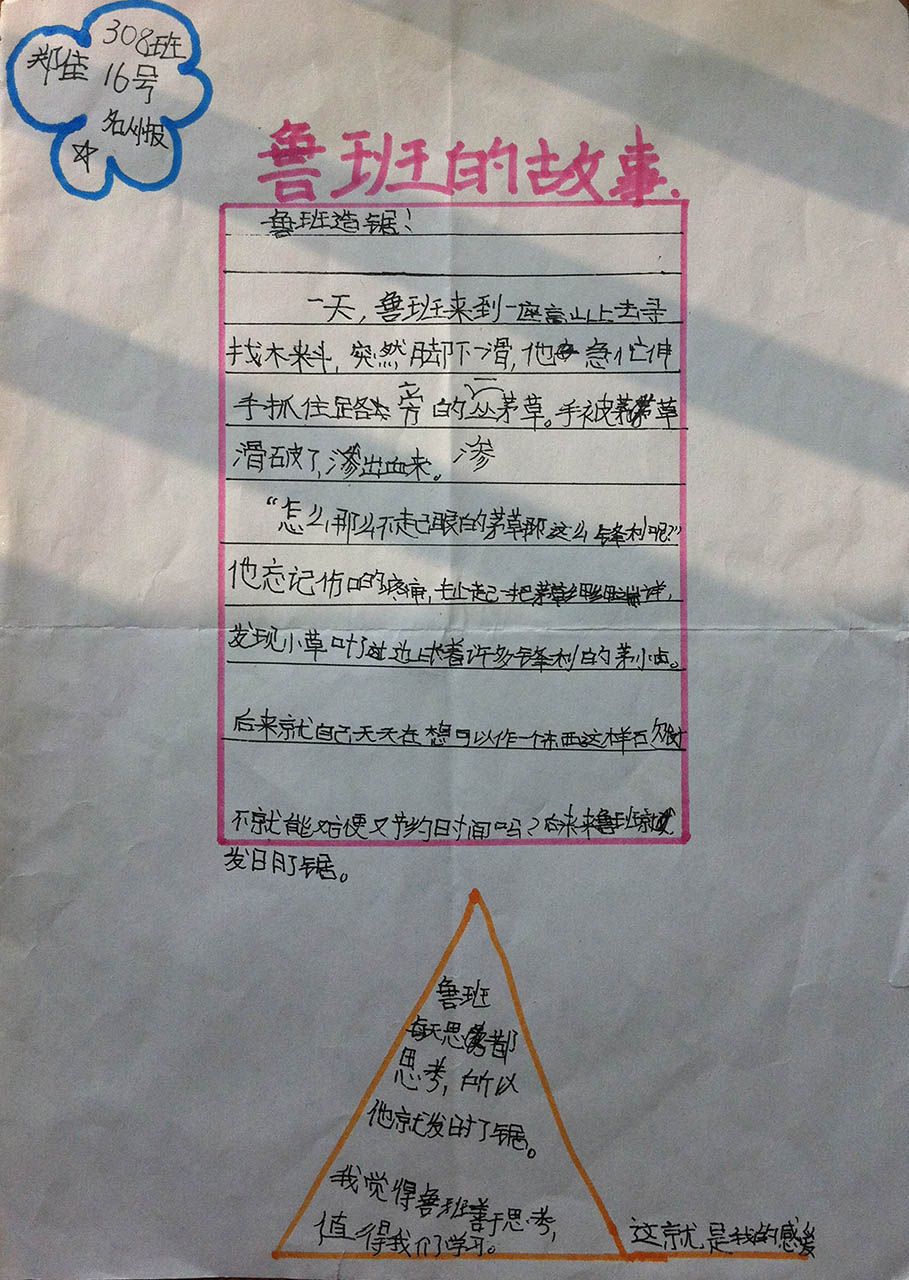 308班
郑佳 16号
名人报
鲁班的故事.
鲁班造锯!
一天,鲁班来到一座高山上去寻
找木料,突然脚下一滑,他急忙伸
手抓住路旁的一丛茅草。手被茅草
滑破了,渗出血来。渗
“怎么那么不起眼的茅草那这么锋利呢?”
他忘记伤口的疼痛,扯起一把茅草细细端详,
发现小草叶子边上长着许多锋利的茅小齿。
后来就自己天天在想可以作一个东西这样
不就能方便又节约时间吗?后来鲁班就
发日月了锯。
鲁班
每天思都
思考,所以
他就发明了锯。
我觉得鲁班善于思考,
值得我们学习。
这就是我的感